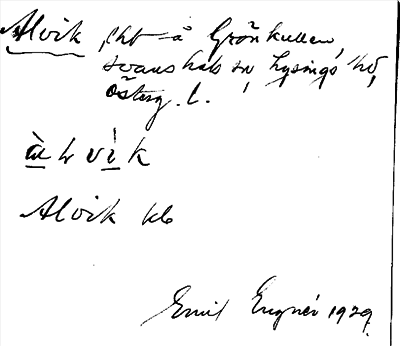 Alvik, lht å Grönkullen,
Svanshals sn, Lysings hd,
Österg. l.
àlvìk
Alvik lb
Emil Engnér 1929.